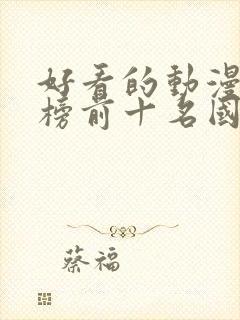 好看的動漫
榜前十名國
蔡福